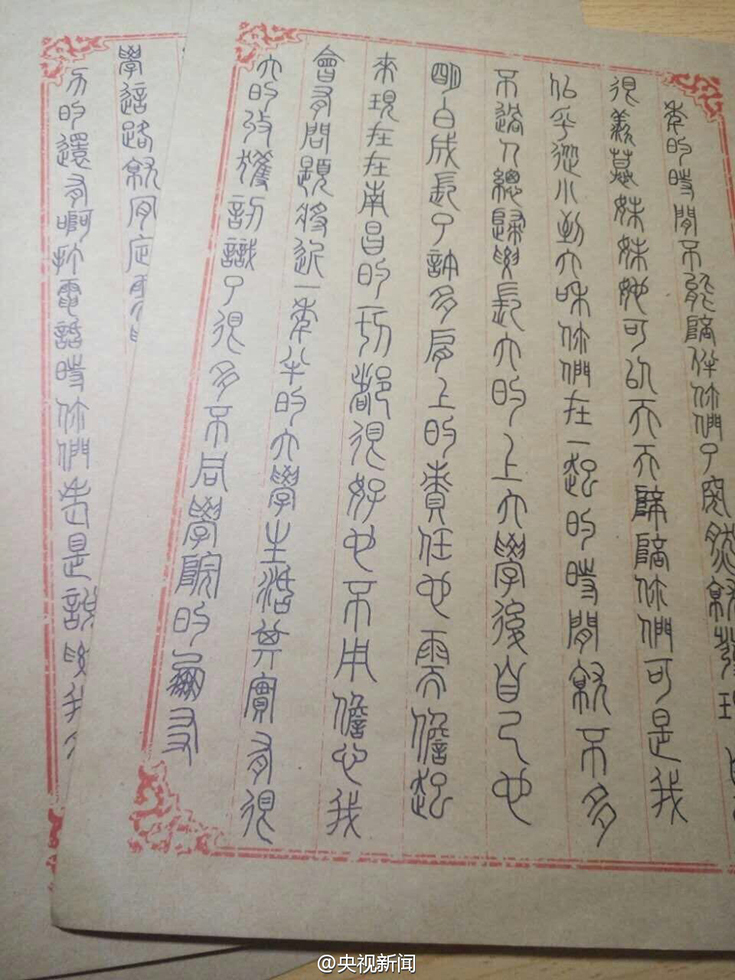 年的時間不能陪伴你們了突然就發現
很羨慕妹妹她可以天天陪陪你們可是我
似乎從小到大和你們在一起的時間就不多
不過人總歸要長大的上大學後自己也
明白成長了許多肩上的責任也需擔起
來現在在南昌的一切都很好也不用擔心我
會有問題將近一年半的大學生活其實有很
大的收獲認識了很多不同學院的朋友
學這路就有
方的還有啊打電話時你們老是說 我
@央视新闻